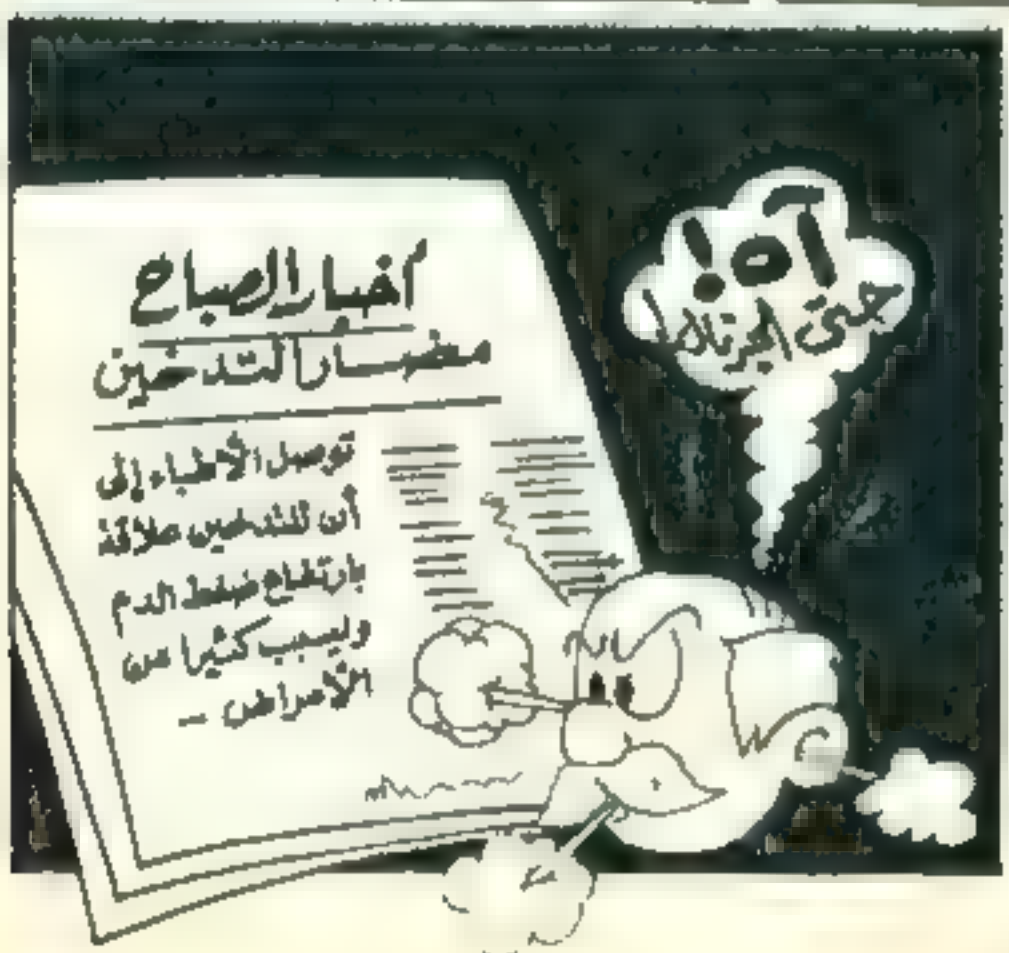 أخبار الصباح
مضار التدخين
توصل الأطباء إلى
أن للتدخين علاقة
بارتفاع ضغط الدم
ويسبب كثيرا من
الأمراض -
آه!
حتى الجرنال!